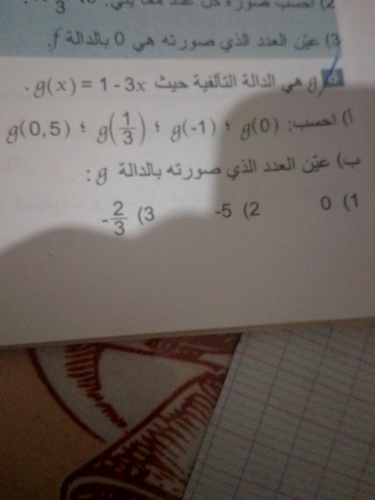 2) احسب صورة كل عدد مما يلي:
3) عيّن العدد الذي صورته هي 0 بالدالة f.
g هي الدالة التآلفية حيث g(x) = 1 - 3x .
أ) احسب: g(0) ؛ g(-1) ؛ g(1/3) ؛ g(0,5)
ب) عيّن العدد الذي صورته بالدالة g :
1) 0 2) -5 3) -2/3